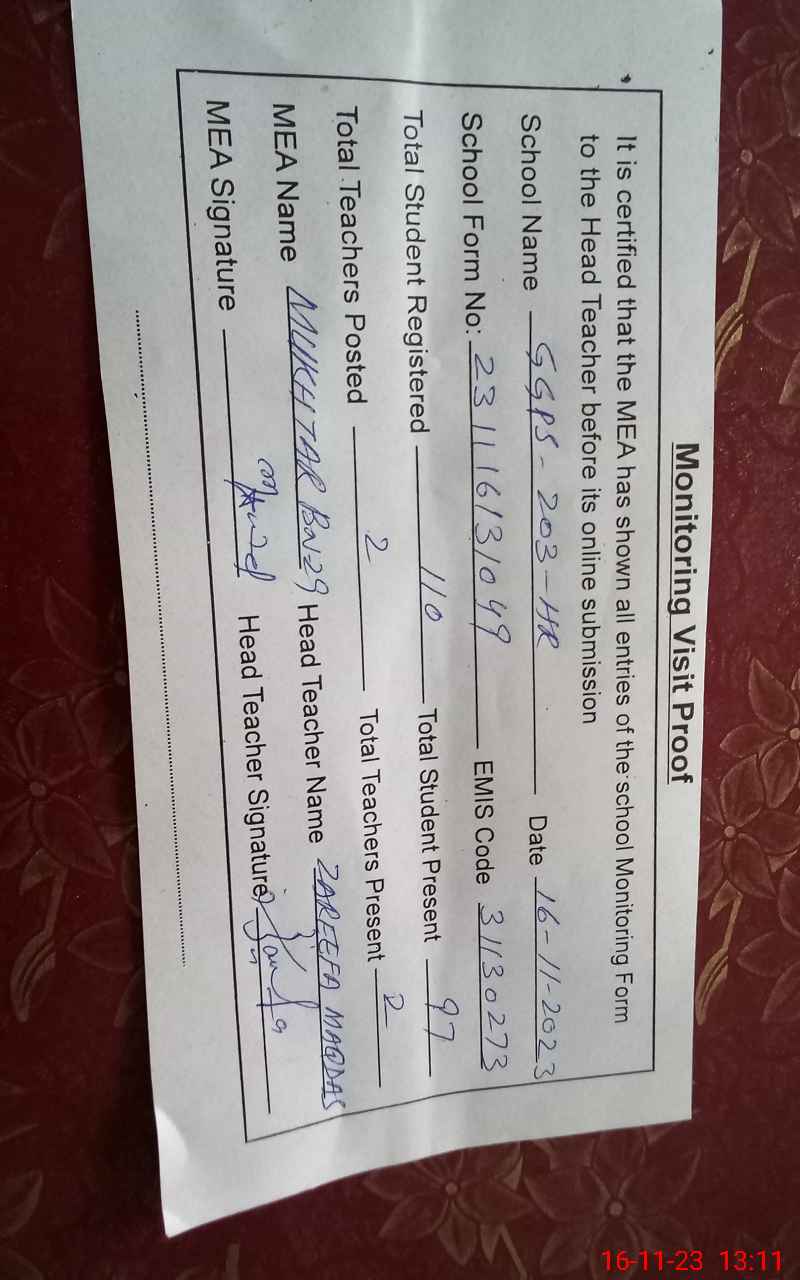 Monitoring Visit Proof
It is certified that the MEA has shown all entries of the school Monitoring Form
to the Head Teacher before its online submission
School Name GGPS-203-HR Date 16-11-2023
School Form No: 231116131049 EMIS Code 31130273
Total Student Registered 110 Total Student Present 97
Total Teachers Posted 2 Total Teachers Present 2
MEA Name MUKHTAR BN29 Head Teacher Name ZAREEFA MAQDAS
MEA Signature Head Teacher Signature
16-11-23 13:11